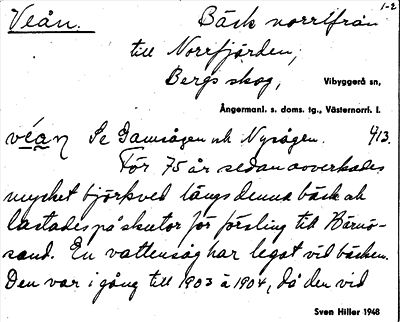 1-2
Veån. Bäck norrifrån
till Norrfjärden,
Bergs skog, Vibyggerå sn,
Ångermanl. s. doms. tg., Västernorrl. l.
véan Se Gamsågen och Nysågen. 9/13.
För 75 år sedan avverkades
mycket björkved längs denna bäck och
lastades på skutor för försling till Härnö-
sand. En vattensåg har legat vid bäcken.
Den var i gång till 1903 à 1904, då den vid
Sven Hiller 1948